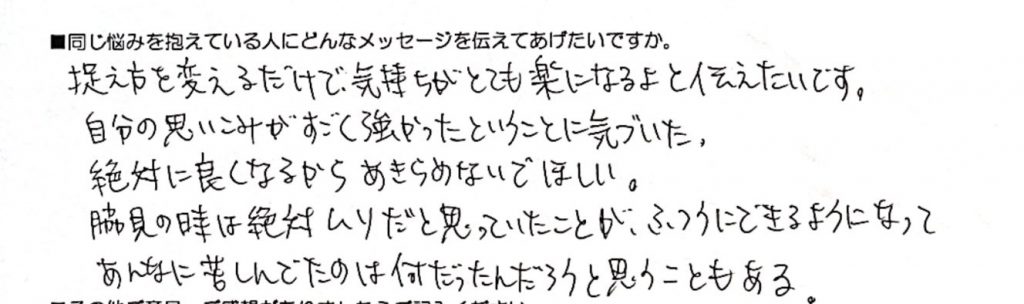 ■同じ悩みを抱えている人にどんなメッセージを伝えてあげたいですか。
捉え方を変えるだけで、気持ちがとても楽になるよと伝えたいです。
自分の思いこみがすごく強かったということに気づいた、
絶対に良くなるから あきらめないでほしい。
脇見の時は絶対ムリだと思っていたことが、ふつうにできるようになって
あんなに苦しんでたのは何だったんだろうと思うこともある。